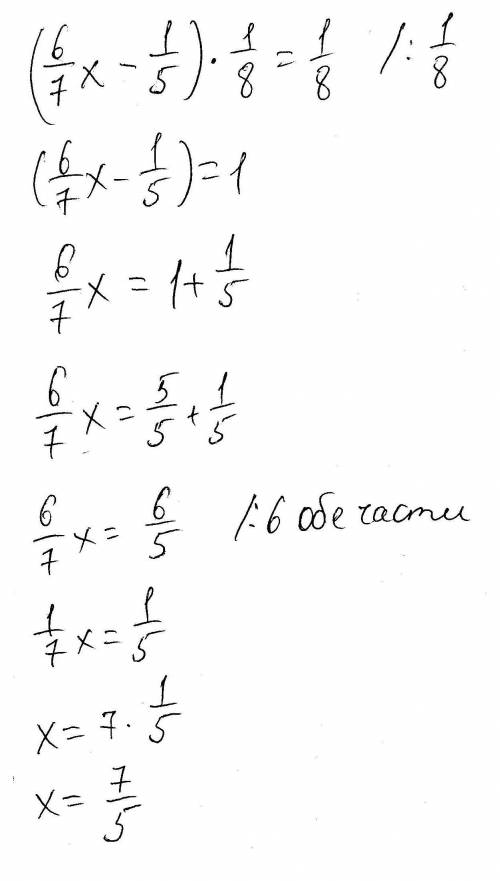 (6/7 x - 1/5) · 1/8 = 1/8 /: 1/8
(6/7 x - 1/5) = 1
6/7 x = 1 + 1/5
6/7 x = 5/5 + 1/5
6/7 x = 6/5 /:6 обе части
1/7 x = 1/5
x = 7 · 1/5
x = 7/5